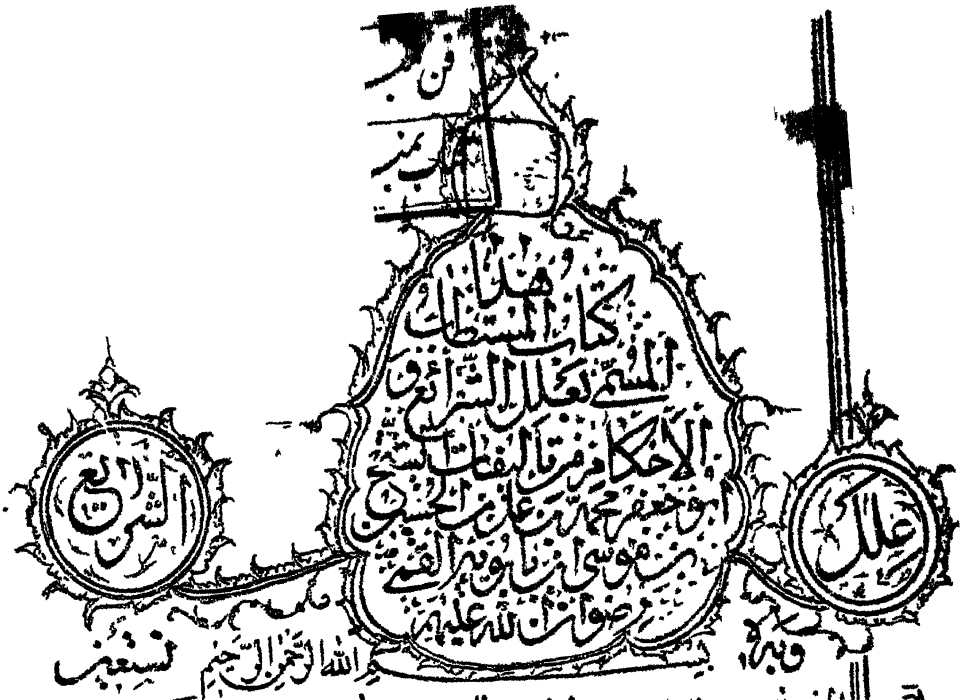 هذا
كتاب المستطاب
المسمى بعلل الشرائع و
الاحكام من مؤلفات الشيخ
ابو جعفر محمد بن علي بن الحسين
بن موسى ابن بابويه القمي
رضوان الله عليه
علل
الشرايع
بسم الله الرحمن الرحيم
وبه
نستعين